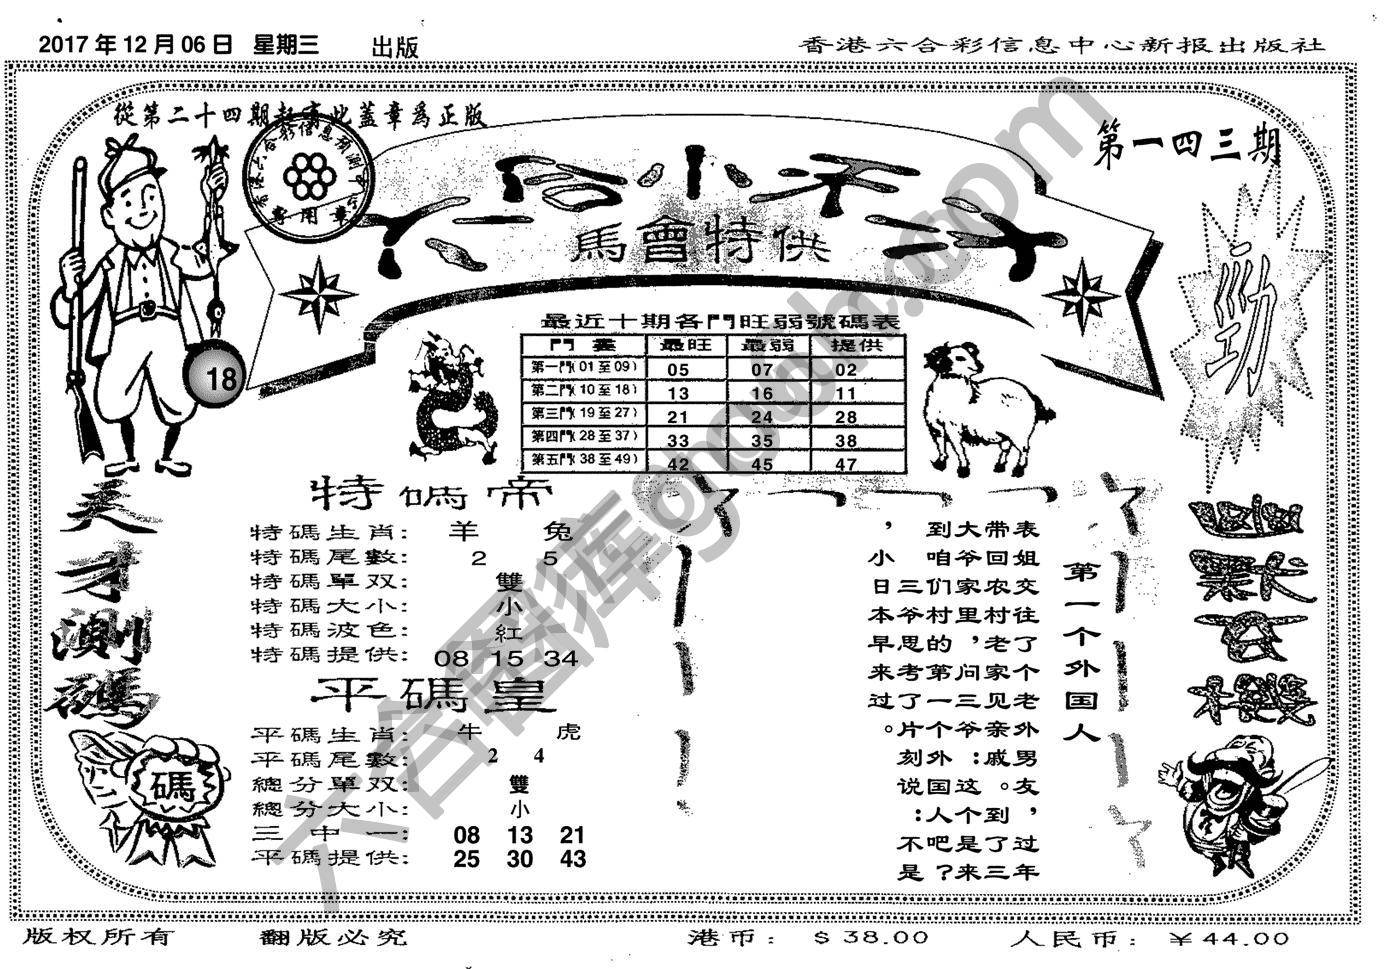 2017 年 12 月 06 日 星期三 出版
香港六合彩信息中心新报出版社
從第二十四期起寄此蓋章爲正版
第一四三期
六合小天才
馬會特供
專用章
勁
18
最近十期各門旺弱號碼表
門 最旺 最弱 提供
第一門(01 至 09) 05 07 02
第二門(10 至 18) 13 16 11
第三門(19 至 27) 21 24 28
第四門(28 至 37) 33 35 38
第五門(38 至 49) 42 45 47
天才測碼
碼
特碼帝
特碼生肖: 羊 兔
特碼尾數: 2 5
特碼單双: 雙
特碼大小: 小
特碼波色: 紅
特碼提供: 08 15 34
平碼皇
平碼生肖: 牛 虎
平碼尾數: 2 4
總分單双: 雙
總分大小: 小
三中一: 08 13 21
平碼提供: 25 30 43
第一个外国人
表姐交往了个老外男友，过年
带回农村老家见亲戚。到了三
大爷家里，问一爷：这个是来
到咱们村的第三个外国人吧？
小三爷思考了片刻说：不是
，日本早来过。
六合图库
版权所有 翻版必究 港币: $ 38.00 人民币: ¥ 44.00